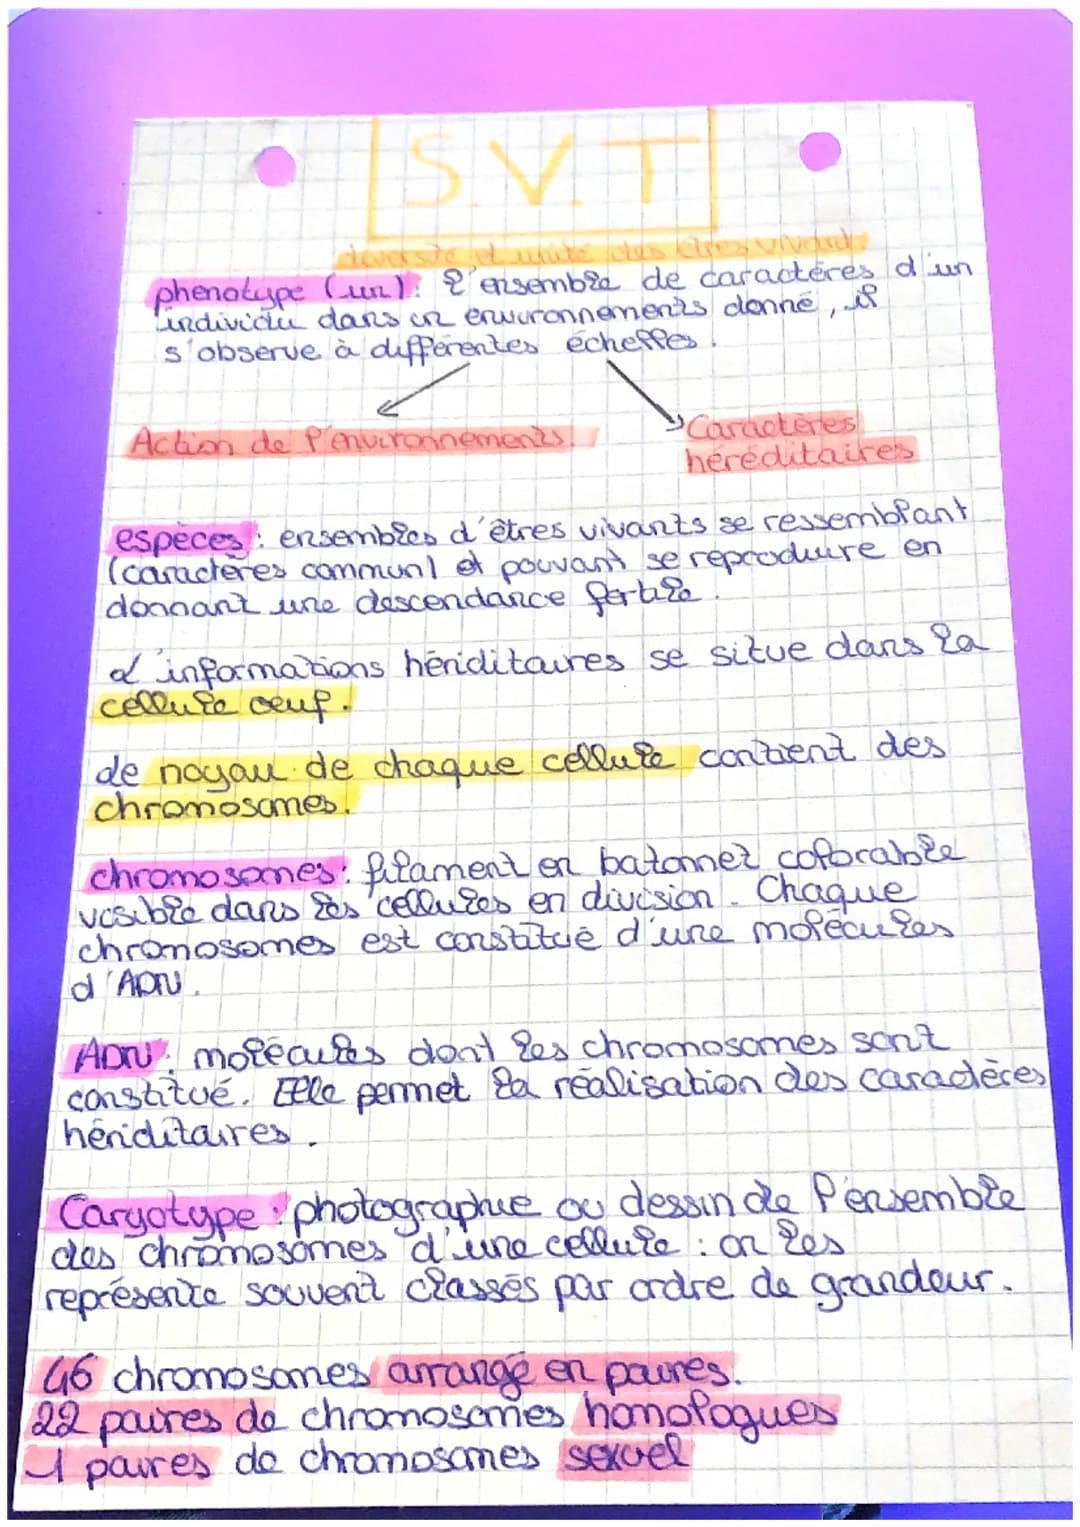 S.V.T
diversité et unité des êtres vivants
phenotype (un): l'ensemble de caractères d'un
individu dans un environnements donné, il
s'observe à différentes échelles.
Action de l'environnements.
Caractères
héréditaires
espèces: ensembles d'êtres vivants se ressemblant
(caractères commun) et pouvant se reproduire en
donnant une descendance fertile.
L'informations hériditaires se situe dans la
cellule oeuf.
de noyau de chaque cellule contient des
chromosomes.
chromosomes: filament en batonnet colorable
visible dans les cellules en division. Chaque
chromosomes est constitué d'une molécules
d'ADN.
ADN: molécules dont les chromosomes sont
constitué. Elle permet la réalisation des caractères
hériditaires.
Caryotype: photographie ou dessin de l'ensemble
des chromosomes d'une cellule: on les
représente souvent classés par ordre de grandeur.
46 chromosomes arrangé en paires.
22 paires de chromosomes homologues
1 paires de chromosomes sexuel